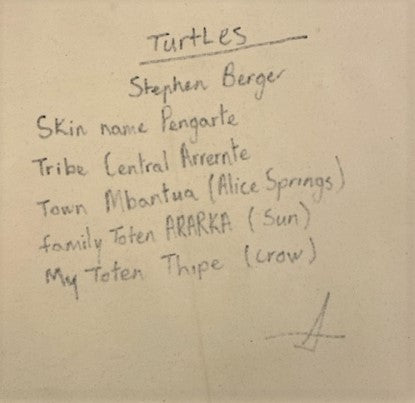 Turtles
Stephen Berger
Skin name Pengarte
Tribe Central Arrernte
Town Mbantua (Alice Springs)
family Toten ARARKA (Sun)
My Toten Thipe (crow)